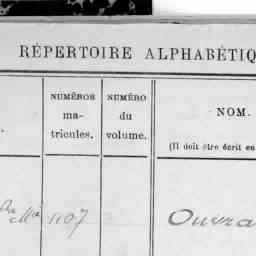 RÉPERTOIRE ALPHABÉTIQ
NUMÉROS
ma-
tricules.
NUMÉRO
du
volume.
NOM.
(Il doit être écrit en
1107
Ouvra